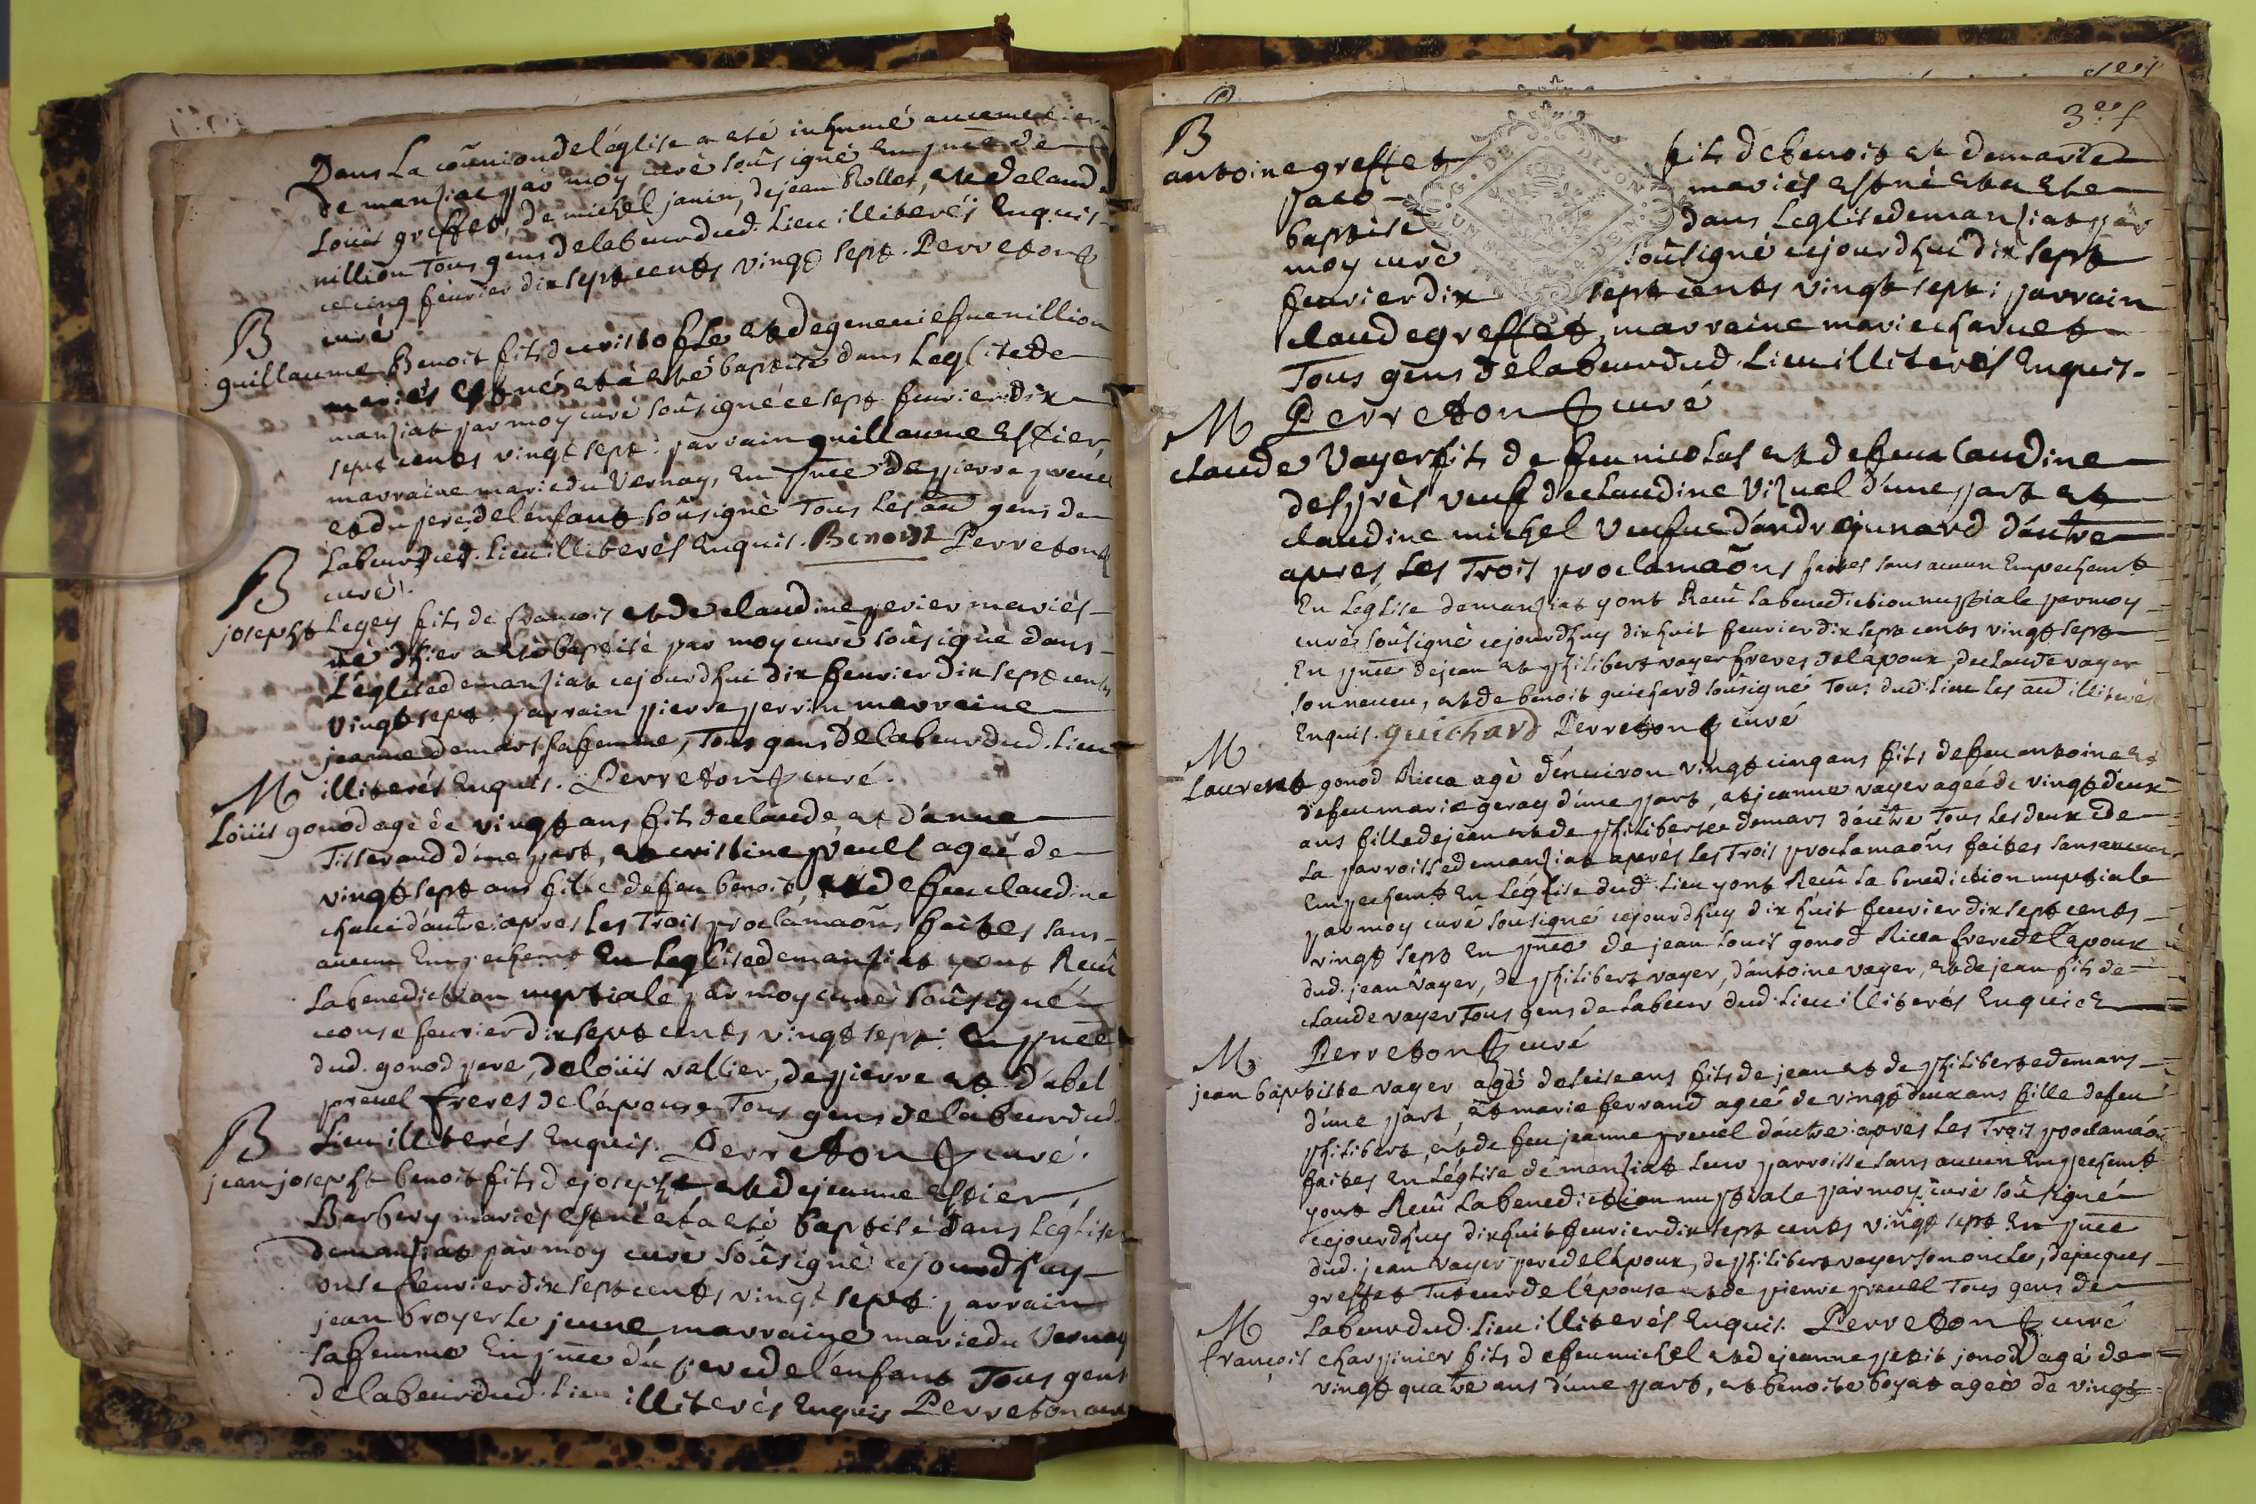 Dans La coûnion de l'église a eté inhumé au cemetie
de manziat par moy curé soûsigné en pnce de
Louis greffet, de michel janin, de jean Rollet, et de claud
nillion Tous gens de labeur dud. Lieu illiterés Enquis
ce cinq feuvrier dix sept cents vingt sept. Perreton
curé
B
guillaume Benoit fils de cristofle et de genevieſue nillion
mariés est né et a eté baptisé dans Leglise de
manziat par moy curé soûsigné ce sept feuvrier dix
sept cents vingt sept: parrain guillaume Estier,
marraine marie du Vernay, En pnce de pierre preuel
et du pere de l'enfant soûsigné Tous Les au gens de
Labeur dud. Lieu illiterés Enquis. Benoist Perreton
curé.
B
josepht Legey fils de francois et de claudine perier mariés
né d'hier a eté baptisé par moy curé soûsigné dans
L'église de manziat cejourdhui dix feuvrier dix sept cents
Vingt sept: parrain pierre perrin marraine
jeanne demars sa femme, Tous gens de labeur dud. Lieu
illiterés Enquis. Perreton curé.
M
Loüis gonod agé de vingt ans fils de claude, et d'anne
Tisserand d'une part, et cristine preuel ageé de
vingt sept ans fille de feu benoit, et de feu claudine
chaui d'autre: apres Les Trois proclamaõns faites sans
aucun Empechemt En Leglise de manziat yont Reçu
La benediction nuptiale par moy curé soûsigné
ce onse feuvrier dix sept cents vingt sept: En pnce
dud. gonod pere, de loüis vallier, de pierre et d'abel
preuel freres de l'épouse Tous gens de labeur dud.
Lieu illiterés Enquis. Perreton curé.
B
jean josepht benoit fils de josepht et de jeanne Estier
Barbery mariés est né et a eté baptisé dans L'église
de manziat par moy curé soûsigné cejourdhuy
onse feuvrier dix sept cents vingt sept: parrain
jean broyer Le jeune, marraine marie du Vernay
sa femme En pnce du pere de l'enfant Tous gens
de labeur dud. Lieu illiterés Enquis Perreton curé
3e. f
B
antoine greffet fils de benoit et de marie
mariés est né et a ete
baptisé dans Leglise de manziat par
moy curé soûsigné cejourdhui dix sept
feuvrier dix sept cents vingt sept: parrain
claude greffet, marraine marie charuet
Tous gens de labeur dud. Lieu illiterés Enquis.
Perreton curé
M
claude Vayer fils de feu nicolas et de feue claudine
desprès veuf de claudine Vizuel d'une part et
claudine michel Veufue d'andre junard d'autre
apres, Les Trois proclamaõns faites sans aucun Empechemt
En L'église de manziat yont Reçû La benediction nuptiale par moy
curé soûsigné cejourdhuy dix huit feuvrier dix sept cents vingt sept
En pnce de jean et philibert vayer freres de l'époux, de claude vayer
son neueu, et de benoit guichard soûsigné Tous dud. Lieu Les au illiterés
Enquis. guichard Perreton curé
M
Laurent gonod Ricca agé d'enuiron vingt cinq ans fils de feu antoine et
de feu marie geray d'une part, et jeanne vayer ageé de vingt deux
ans fille de jean et de philiberte demars d'autre Tous Les deux de
La parroisse de manziat aprés Les Trois proclamaõns faites sans aucun
Empechemt En L'église dud. Lieu yont Reçû La benediction nuptiale
par moy curé soûsigné cejourdhuy dix huit feuvrier dix sept cents
vingt sept En pnce de jean Louis gonod Ricca frere de l'époux
dud. jean Vayer, de philibert vayer, d'antoine vayer, et de jean fils de
claude vayer Tous gens de Labeur dud. Lieu illiterés Enquis
Perreton curé
M
jean baptiste vayer agé de seise ans fils de jean et de philiberte demars
d'une part, et marie ferrand ageé de vingt deux ans fille de feu
philibert, et de feu jeanne preuel d'autre: aprés Les Trois proclamaõn
faites En L'église de manziat Leur parroisse sans aucun Empechemt
yont Reçû La benediction nuptiale par moy curé soûsigné
cejourdhuy dix huit feuvrier dix sept cents vingt sept En pnce
dud. jean Vayer pere de l'époux, de philibert vayer son oncle, de jaques
greffet Tuteur de l'épouse et de pierre preuel Tous gens de
Labeur dud. Lieu illiterés Enquis. Perreton curé
M
francois charpinier fils de feu michel et de jeanne petit jonod agé de
vingt quatre ans d'une part, et benoite boyat ageé de vingt